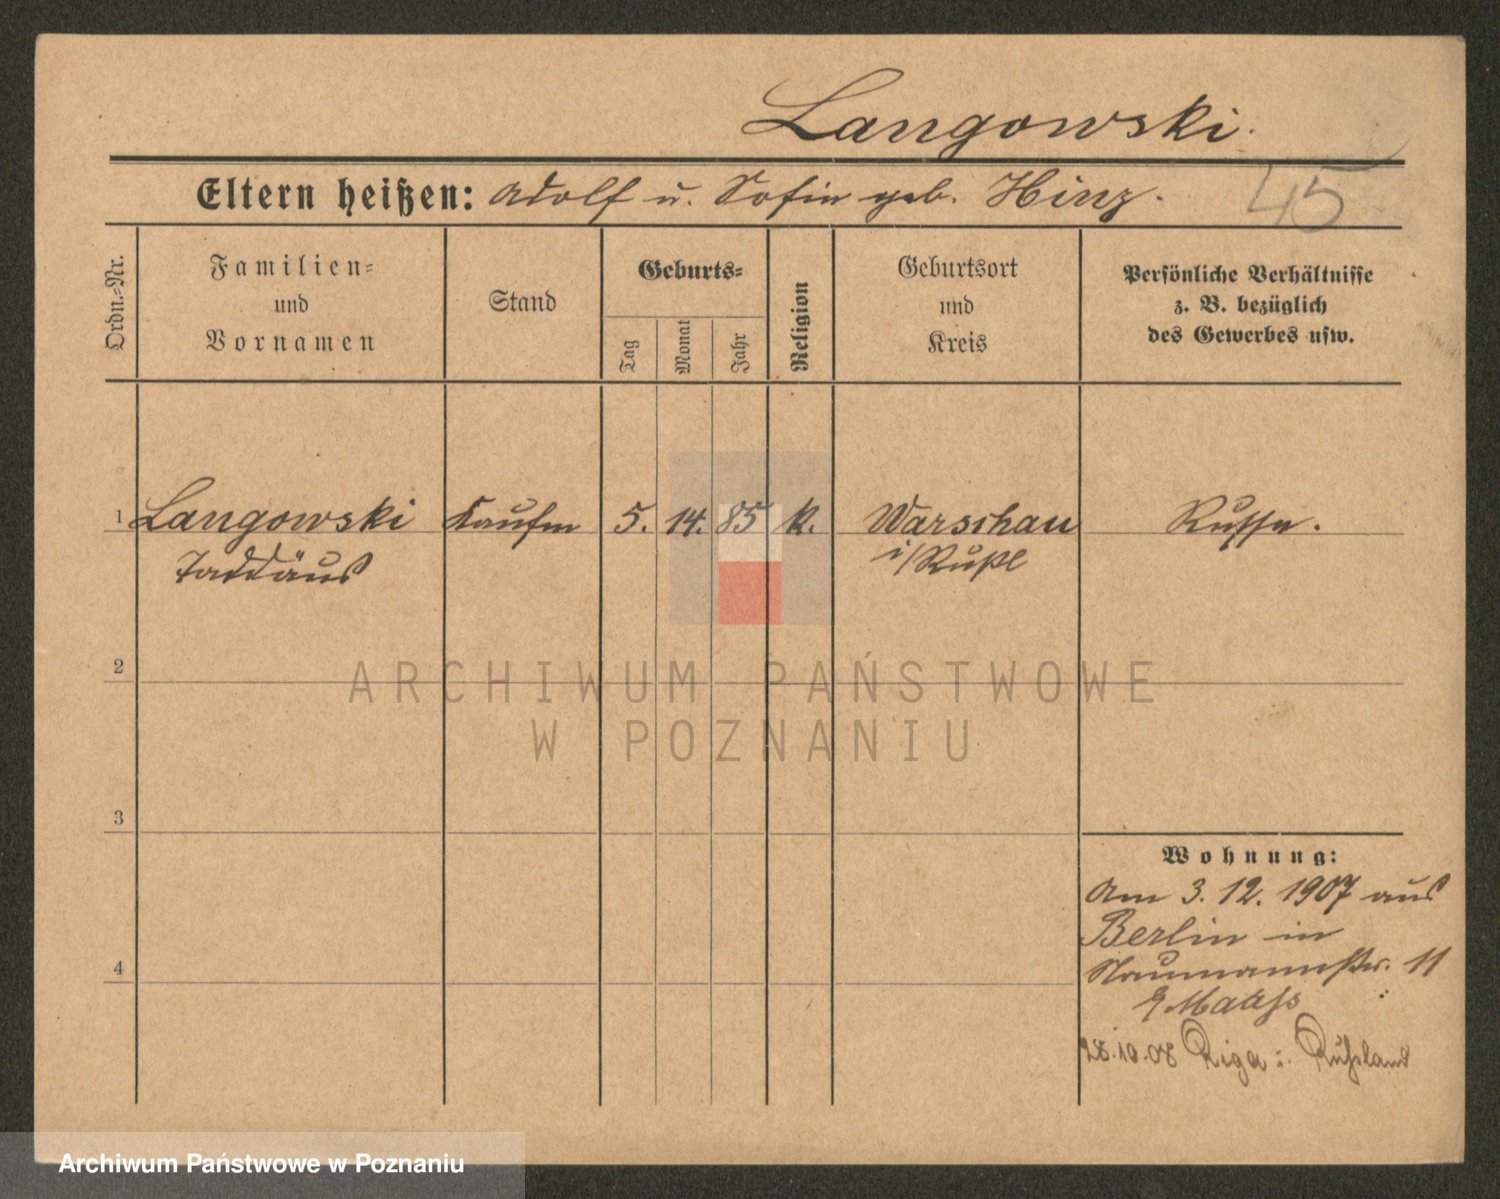 Langowski.
Eltern heißen: Adolf u. Sofia geb. Hinz.
45
Ordn.-Nr.
Familien-
und
Vornamen
Stand
Geburts-
Tag
Monat
Jahr
Religion
Geburtsort
und
Kreis
Persönliche Verhältnisse
z. B. bezüglich
des Gewerbes usw.
1 Langowski Kaufm 5. 14. 85 k. Warschau Russe.
Taddäus i/Rußl
2
ARCHIWUM PAŃSTWOWE
W POZNANIU
3
Wohnung:
Am 3. 12. 1907 aus
Berlin in
Naumannstr. 11
Maaß
4
28.10.08 Riga i. Rußland
Archiwum Państwowe w Poznaniu